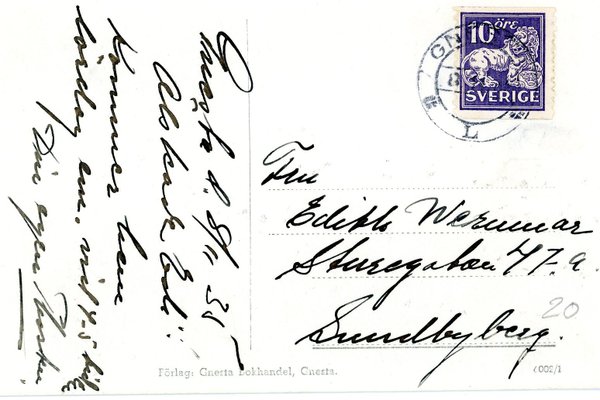 Gnesta d. 8/11 35
Älskade Edit!
Kommer hem
lördag em.
Din egen
10 öre
SVERIGE
GN
L
Fru
Edith Wernmar
Sturegatan 47.a
Sundbyberg.
20
Förlag: Gnesta Bokhandel, Gnesta.
6002/1